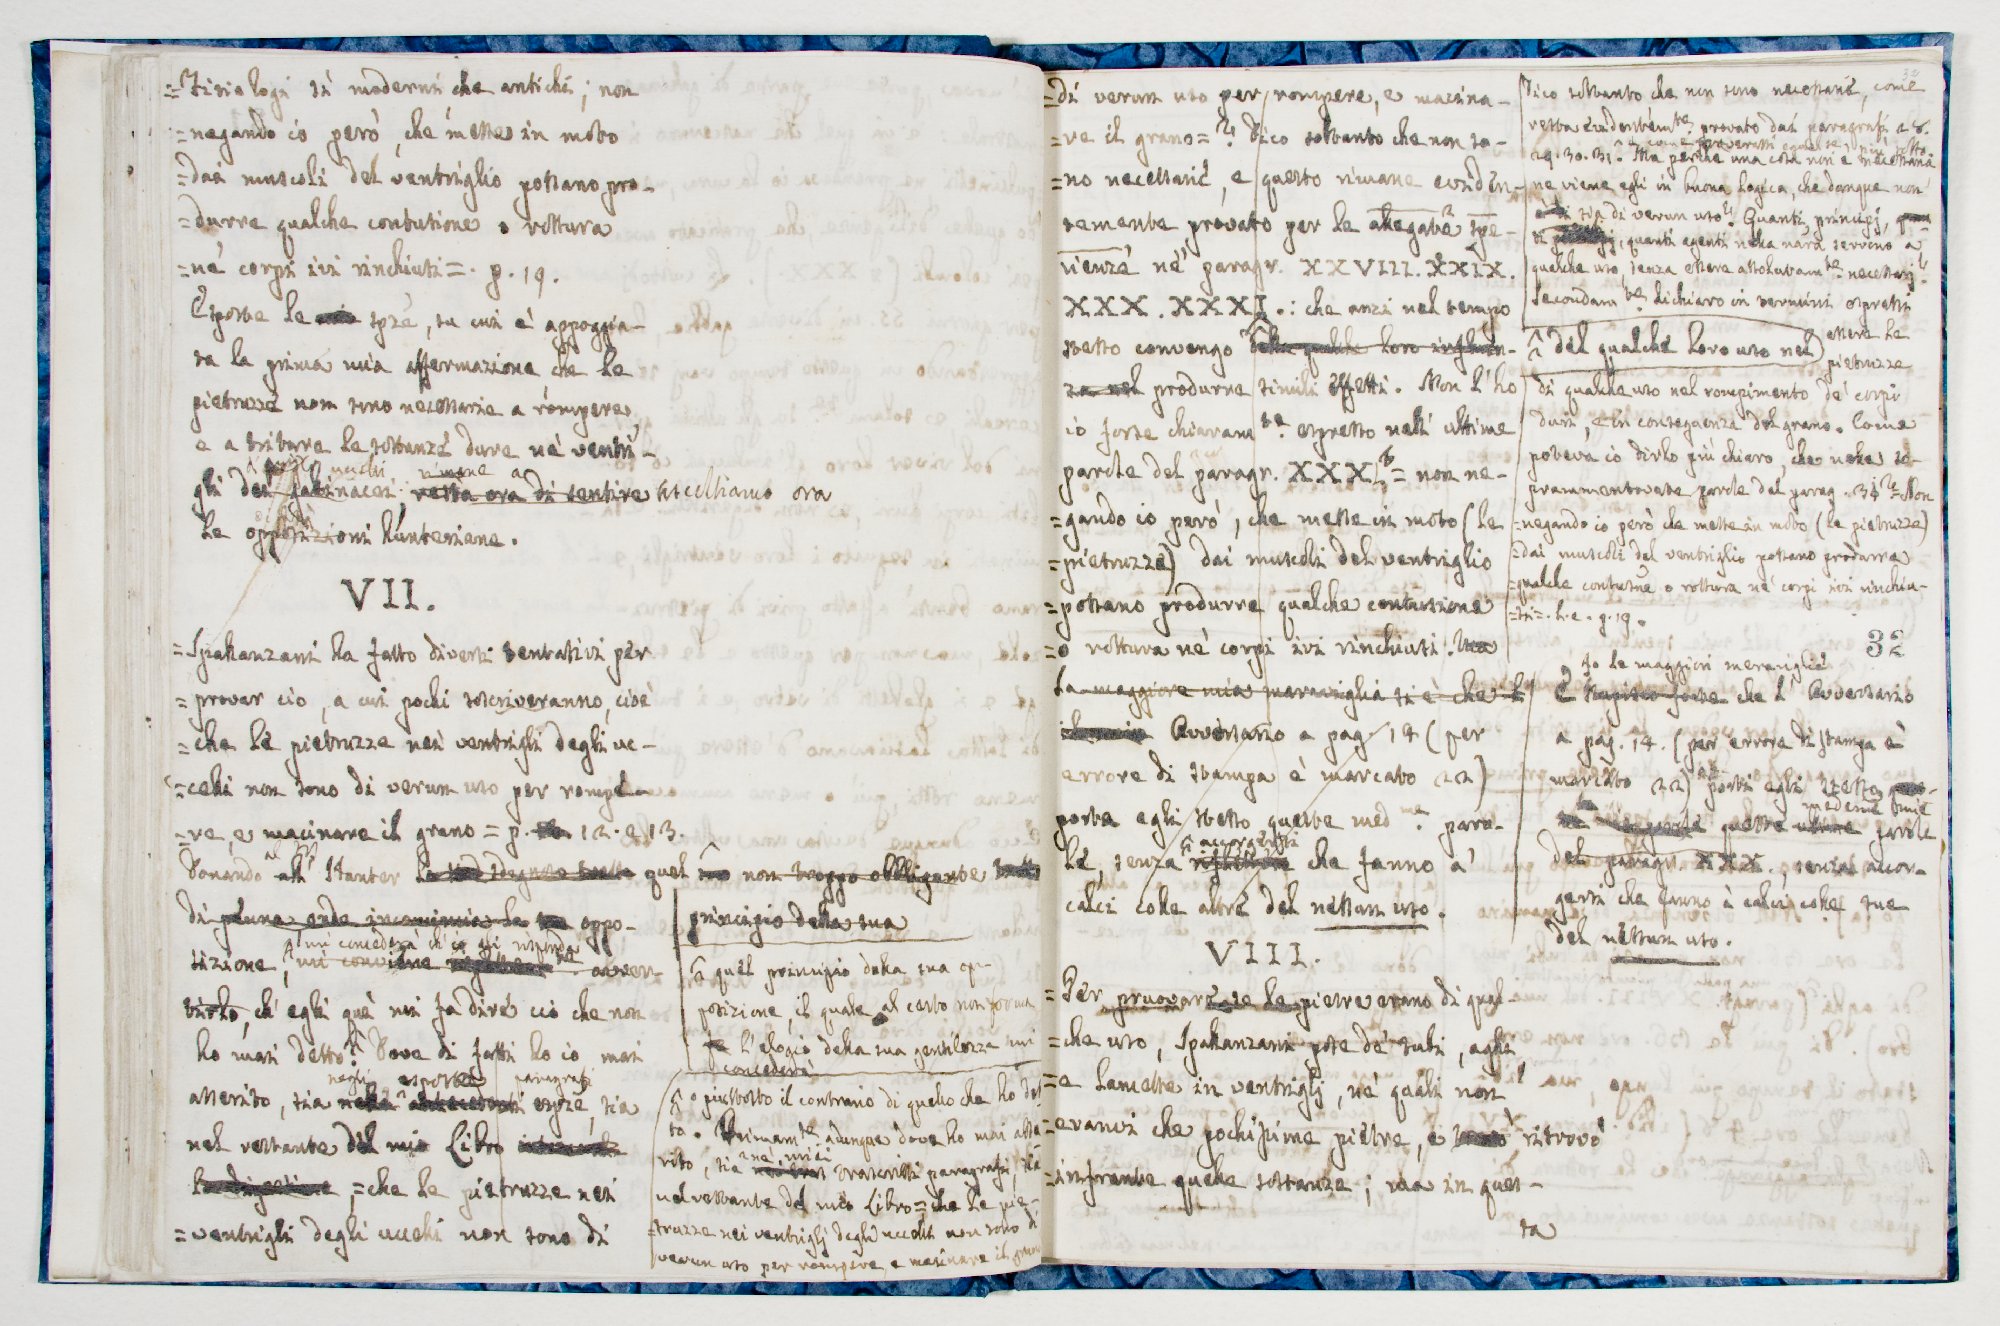 =Fisiologi sì moderni che antichi; non
=negando io però, che messe in moto
=dai muscoli del ventriglio possano pro-
=durre qualche contusione o rottura
=ne' corpi ivi rinchiusi=. p. 19.
Esposte le spze, su cui è appoggia-
ta la prima mia affermazione che le
pietruzze non sono necessarie a rompere,
e a tritare le sostanze dure ne' ventri-
uccelli rimane a
gli dei gallinacei; resta ora di sentire ascoltiamo ora
le opposizioni Hunteriane.
VII.
=Spallanzani ha fatto diversi tentativi per
=provar ciò, a cui pochi soscriveranno, cioè
=che le pietruzze nei ventrigli degli uc-
=celli non sono di verun uso per rompe-
=re, e macinare il grano= p. 12. e 13.
Donando all' Hunter quel non troppo obbligante
di oppo-
mi concederà ch'io gli risponda
sizione, mi conviene avver-
tirlo, ch' egli quì mi fa dire ciò che non
ho mai detto. Dove di fatti ho io mai
negli esposti paragrafi
asserito, sia nelle antecedenti spze, sia
nel restante del mio Libro
la digestione, =che le pietruzze nei
=ventrigli degli uccelli non sono di
principio della sua
quel principio della sua op-
posizione, il quale al certo non forma
l'elogio della sua gentilezza mi
concederà
o piuttosto il contrario di quello che ho det-
to. Primamte. adunque dove ho mai asse-
ne' miei
rito, sia trascritti paragrafi, sia
nel restante del mio Libro =che le pie-
=truzze nei ventriglj degli uccelli non sono di
verun uso per rompere, e macinare il grano
=di verun uso per rompere, e macina-
=re il grano=? Dico soltanto che non so-
=no necessarie, e questo rimane eviden-
temente provato per le allegate spe-
rienze ne' paragr. XXVIII. XXIX.
XXX. XXXI.: che anzi nel tempo
stesso convengo della qualche loro influen-
za nel produrre simili effetti. Non l'ho
io forse chiaramte. espresso nelle ultime
parole del paragr. XXXI = non ne-
=gando io però, che messe in moto (le
=pietruzze) dai muscoli del ventriglio
=possano produrre qualche contusione
=o rottura ne' corpi ivi rinchiusi.
La maggiore mia maraviglia si è che l'
Avversario a pag. 14 (per
errore di stampa è marcato 22)
porta egli stesso queste medme. paro-
accorgersi
le, senza riflettere che fanno a'
calci colle altre del nessun uso.
VIII.
=Per pruovare se le pietre erano di qual-
=che uso, Spallanzani pose de' tubi, aghi
=e lancette in ventriglj, ne' quali non
=eranvi che pochissime pietre, e ritrovò
=infrante quelle sostanze; ma in ques-
ta
32
Dico soltanto che non sono necessarie, come
resta evidentemte. provato dai paragrafi 28.
29. 30. 31. Ma perchè una cosa non è necessaria
ne viene egli in buona Logica, che dunque non
sia di verun uso? Quanti principj,
quanti agenti nella nara servono a
qualche uso, senza essere assolutamte. necessarj?
Secondamte. dichiaro in termini espressi
del qualche loro uso nel
essere le
pietruzze
di qualche uso nel rompimento de' corpi
duri, e in conseguenza del grano. Come
poteva io dirlo più chiaro, che nelle so-
prammentovate parole del parag. 31 = Non
=negando io però che messe in moto (le pietruzze)
=dai muscoli del ventriglio possano produrre
=qualche contusne o rottura ne' corpi ivi rinchiu-
=si=. l. c. p. 19.
32
fo le maggiori meraviglie
E stupisco forte che l'Avversario
a pag. 14. (per errore di stampa è
marcato 22) porti egli stesso
medesime mie
queste ultime parole
del paragr. XXX., senza accor-
gersi che fanno a' calci colle sue
del nessun uso.